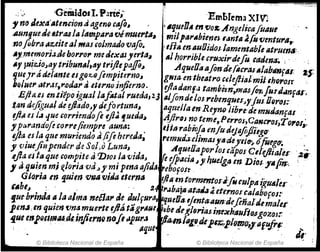 Gemidos I. Parte;
y no dexa atencion à ageno caso,
aunque de atras la lampara vè muerta,
no sobra azeite al mas colmado vaso.
ay memoria de borror me dexas yerta,
ay juizio, ay tribunal, ay triste passo,
que yr à delante es gozo sempiterno,
bolver atras, rodar à eterno infierno.
Esta es en tiepo igual la fatal rueda,
tan desigual de estado, y de fortuna,
esta es la que corriendo se està queda,
y parandose corre siempre auna:
esta es la que muriendo à si se hereda,
y vive sin pender de Sol, ò Luna,
esta es la que compite à Dios la vida,
y à quien mi gloria va, y mi pena asida
Gloria en quien vna vida eterna
cabe,
que brinda à la alma nestar de dulçura,
pena en quien vna muerte està tã grave
que en postimas de infierno no se apura
aque
Emblema XIV.
aquella en voz Angelica suave
mil parabienes canta à su ventura,
esta en aullidos lamentable atruena
al horrible cruxir de su cadena.
Aquella à son de sacras alabanças 25
guia en theatro celestial mil choros:
esta dança tambien, mas son sus danças
al son de los rebenques, y sus lloros:
aquella en Reyno libre de mudanças
Astros no teme, Perros, Cancros, Toros,
esta rabiosa en su desasosiego
remuda llamas ya de yelo, ò fuego.
Aquella por los càpos Celestiales 26
se espacia, y huelga en Dios ya sin
reboços:
esta en tormentos à su culpa iguales
rabaja atada à eternos calaboços:
aquella esenta aun de señal de males
sobe de glorias inexhaustos gozos:
esta en lago de pez, plomo, y açufre
de
© Biblioteca Nacional de España
© Biblioteca Nacional de España